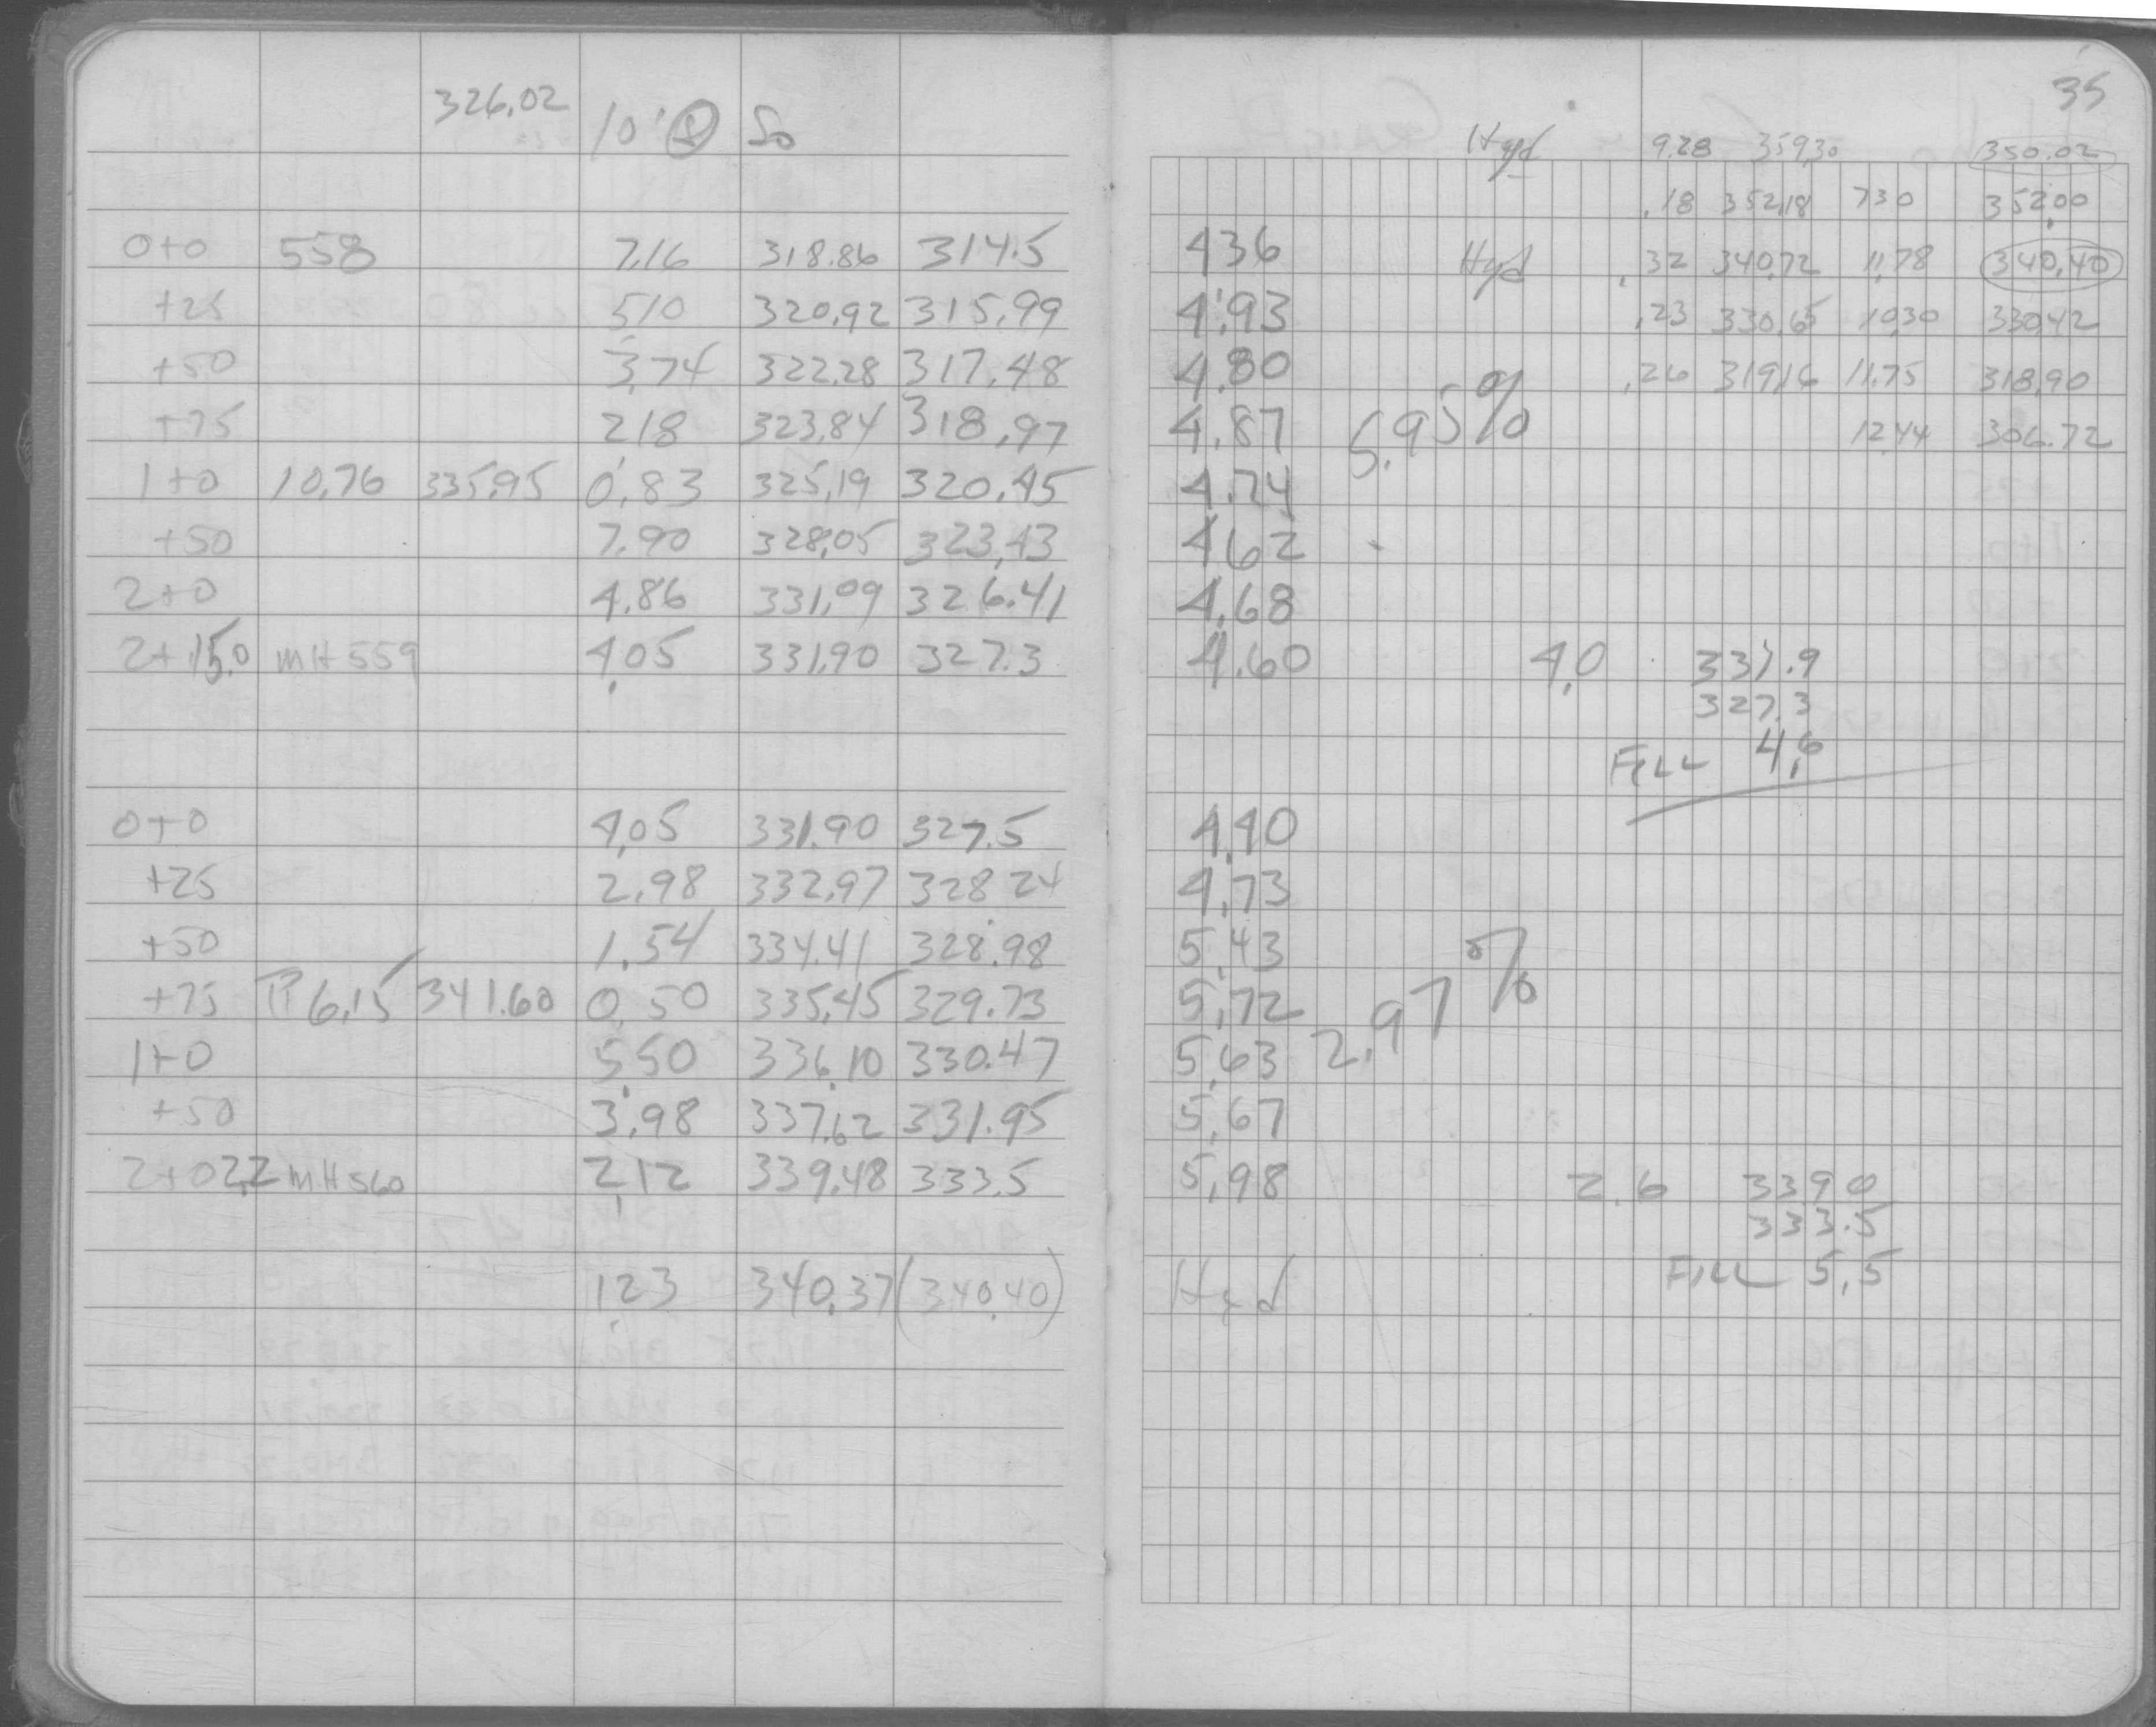 35
326.02 10' So
Hyd 9.28 359.30 350.02
.18 352.18 7.30 352.00
0+0 558 7.16 318.86 314.5 4.36 Hyd .32 340.72 11.78 340.40
+25 5.10 320.92 315.99 4.93 .23 330.65 10.30 330.42
+50 3.74 322.28 317.48 4.80 .26 319.16 11.75 318.90
+75 2.18 323.84 318.97 4.87 5.95% 12.44 306.72
1+0 10.76 335.95 0.83 325.19 320.45 4.74
+50 7.90 328.05 323.43 4.62
2+0 4.86 331.09 326.41 4.68
2+15.0 MH 559 4.05 331.90 327.3 4.60 4.0 331.9
327.3
FILL 4.6
0+0 4.05 331.90 327.5 4.40
+25 2.98 332.97 328.24 4.73
+50 1.54 334.41 328.98 5.43
+75 TP 6.15 341.60 0.50 335.45 329.73 5.72 2.97%
1+0 5.50 336.10 330.47 5.63
+50 3.98 337.62 331.95 5.67
2+02.2 MH 560 2.12 339.48 333.5 5.98 2.6 339.0
333.5
FILL 5.5
1.23 340.37 (340.40) Hyd